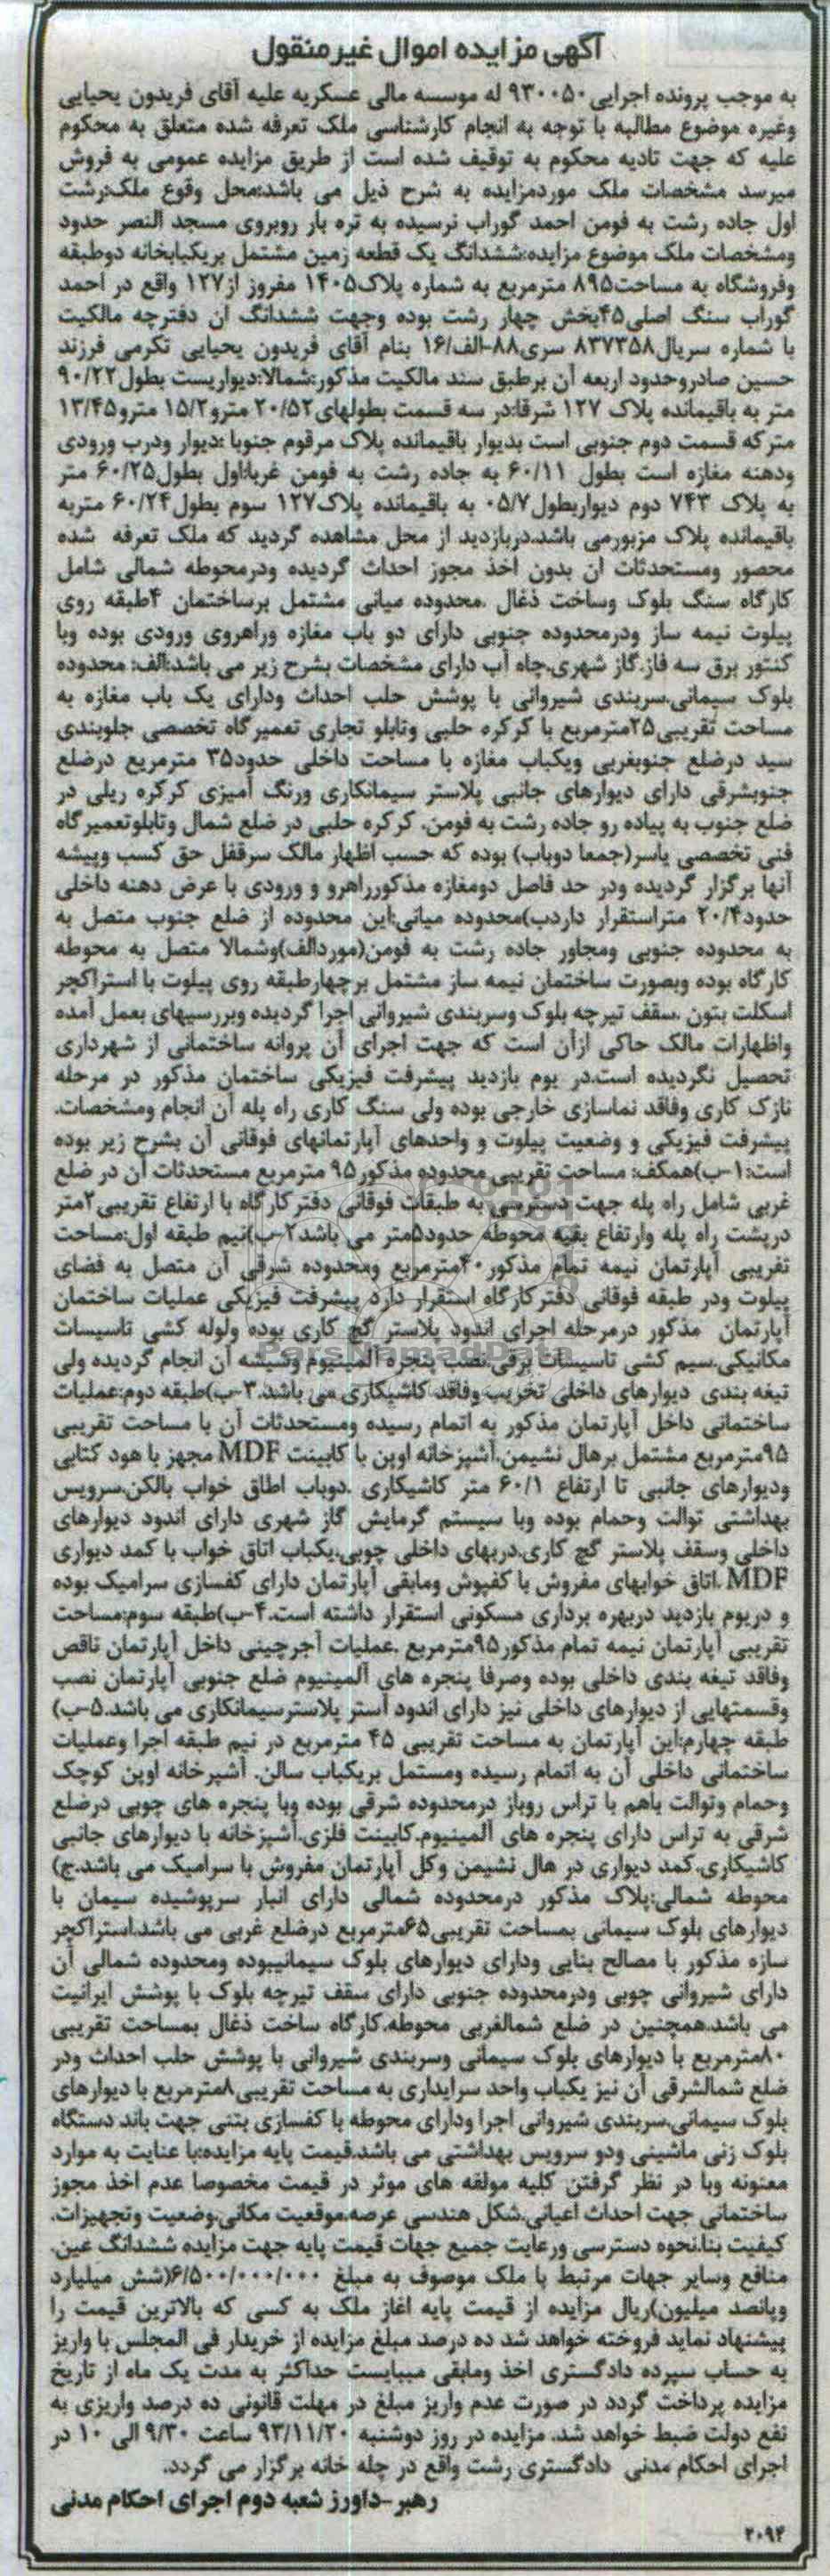 آگهی مزایده اموال غیرمنقول
به موجب پرونده اجرایی۹۳۰۰۵۰ له موسسه مالی عسکریه علیه آقای فریدون یحیایی
وغیره موضوع مطالبه با توجه به انجام کارشناسی ملک تعرفه شده متعلق به محکوم
علیه که جهت تادیه محکوم به توقیف شده است از طریق مزایده عمومی به فروش
میرسد مشخصات ملک موردمزایده به شرح ذیل می باشد:محل وقوع ملک:رشت
اول جاده رشت به فومن احمد گوراب نرسیده به تره بار روبروی مسجد النصر حدود
ومشخصات ملک موضوع مزایده:ششدانگ یک قطعه زمین مشتمل بریکبابخانه دوطبقه
وفروشگاه به مساحت۸۹۵ مترمربع به شماره پلاک۱۴۰۵ مفروز از۱۲۷ واقع در احمد
گوراب سنگ اصلی۴۵بخش چهار رشت بوده وجهت ششدانگ آن دفترچه مالکیت
با شماره سریال۸۳۷۳۵۸ سری۸۸-الف/۱۶ بنام آقای فریدون یحیایی تکرمی فرزند
حسین صادروحدود اربعه آن برطبق سند مالکیت مذکور:شمالا:دیواریست بطول۹۰/۲۲
متر به باقیمانده پلاک ۱۲۷ شرقا:در سه قسمت بطولهای۲۰/۵۲ مترو۱۵/۲ مترو۱۳/۴۵
مترکه قسمت دوم جنوبی است بدیوار باقیمانده پلاک مرقوم جنوبا :دیوار ودرب ورودی
ودهنه مغازه است بطول ۶۰/۱۱ به جاده رشت به فومن غربا:اول بطول۶۰/۲۵ متر
به پلاک ۷۴۳ دوم دیواربطول۰۵/۷ به باقیمانده پلاک۱۲۷ سوم بطول۶۰/۲۴ متربه
باقیمانده پلاک مزبورمی باشد.دربازدید از محل مشاهده گردید که ملک تعرفه شده
محصور ومستحدثات آن بدون اخذ مجوز احداث گردیده ودرمحوطه شمالی شامل
کارگاه سنگ بلوک وساخت ذغال .محدوده میانی مشتمل برساختمان ۴طبقه روی
پیلوت نیمه ساز ودرمحدوده جنوبی دارای دو باب مغازه وراهروی ورودی بوده وبا
کنتور برق سه فاز.گاز شهری.چاه آب دارای مشخصات بشرح زیر می باشد:الف: محدوده
بلوک سیمانی.سربندی شیروانی با پوشش حلب احداث ودارای یک باب مغازه به
مساحت تقریبی۲۵مترمربع با کرکره حلبی وتابلو تجاری تعمیرگاه تخصصی جلوبندی
سید درضلع جنوبغربی ویکباب مغازه با مساحت داخلی حدود۳۵ مترمربع درضلع
جنوبشرقی دارای دیوارهای جانبی پلاستر سیمانکاری ورنگ آمیزی کرکره ریلی در
ضلع جنوب به پیاده رو جاده رشت به فومن. کرکره حلبی در ضلع شمال وتابلوتعمیرگاه
فنی تخصصی یاسر(جمعا دوباب) بوده که حسب اظهار مالک سرقفل حق کسب وپیشه
آنها برگزار گردیده ودر حد فاصل دومغازه مذکورراهرو و ورودی با عرض دهنه داخلی
حدود۲۰/۴ متراستقرار دارد.ب)محدوده میانی:این محدوده از ضلع جنوب متصل به
به محدوده جنوبی ومجاور جاده رشت به فومن(موردالف)وشمالا متصل به محوطه
کارگاه بوده وبصورت ساختمان نیمه ساز مشتمل برچهارطبقه روی پیلوت با استراکچر
اسکلت بتون .سقف تیرچه بلوک وسربندی شیروانی اجرا گردیده وبررسیهای بعمل آمده
واظهارات مالک حاکی ازآن است که جهت اجرای آن پروانه ساختمانی از شهرداری
تحصیل نگردیده است.در یوم بازدید پیشرفت فیزیکی ساختمان مذکور در مرحله
نازک کاری وفاقد نماسازی خارجی بوده ولی سنگ کاری راه پله آن انجام ومشخصات.
پیشرفت فیزیکی و وضعیت پیلوت و واحدهای آپارتمانهای فوقانی آن بشرح زیر بوده
است:۱-ب)همکف: مساحت تقریبی محدوده مذکور۹۵ مترمربع مستحدثات آن در ضلع
غربی شامل راه پله جهت دسترسی به طبقات فوقانی دفترکارگاه با ارتفاع تقریبی۲متر
درپشت راه پله وارتفاع بقیه محوطه حدود۵متر می باشد۲-ب)نیم طبقه اول:مساحت
تقریبی آپارتمان نیمه تمام مذکور۴۰مترمربع ومحدوده شرقی آن متصل به فضای
پیلوت ودر طبقه فوقانی دفترکارگاه استقرار دارد پیشرفت فیزیکی عملیات ساختمان
آپارتمان مذکور درمرحله اجرای اندود پلاستر گچ کاری بوده ولوله کشی تاسیسات
مکانیکی.سیم کشی تاسیسات برقی.نصب پنجره آلمینیوم وشیشه آن انجام گردیده ولی
تیغه بندی دیوارهای داخلی تخریب وفاقد کاشیکاری می باشد.۳-ب)طبقه دوم:عملیات
ساختمانی داخل آپارتمان مذکور به اتمام رسیده ومستحدثات آن با مساحت تقریبی
۹۵مترمربع مشتمل برهال نشیمن.آشپزخانه اوپن با کابینت MDF مجهز با هود کتابی
ودیوارهای جانبی تا ارتفاع ۶۰/۱ متر کاشیکاری .دوباب اطاق خواب بالکن.سرویس
بهداشتی توالت وحمام بوده وبا سیستم گرمایش گاز شهری دارای اندود دیوارهای
داخلی وسقف پلاستر گچ کاری.دربهای داخلی چوبی.یکباب اتاق خواب با کمد دیواری
MDF .اتاق خوابهای مفروش با کفپوش ومابقی آپارتمان دارای کفسازی سرامیک بوده
و دریوم بازدید دربهره برداری مسکونی استقرار داشته است.۴-ب)طبقه سوم:مساحت
تقریبی آپارتمان نیمه تمام مذکور۹۵مترمربع .عملیات آجرچینی داخل آپارتمان ناقص
وفاقد تیغه بندی داخلی بوده وصرفا پنجره های آلمینیوم ضلع جنوبی آپارتمان نصب
وقسمتهایی از دیوارهای داخلی نیز دارای اندود آستر پلاسترسیمانکاری می باشد.۵-ب)
طبقه چهارم:این آپارتمان به مساحت تقریبی ۴۵ مترمربع در نیم طبقه اجرا وعملیات
ساختمانی داخلی آن به اتمام رسیده ومستمل بریکباب سالن. آشپزخانه اوپن کوچک
وحمام وتوالت باهم با تراس روباز درمحدوده شرقی بوده وبا پنجره های چوبی درضلع
شرقی به تراس دارای پنجره های آلمینیوم.کابینت فلزی.آشپزخانه با دیوارهای جانبی
کاشیکاری.کمد دیواری در هال نشیمن وکل آپارتمان مفروش با سرامیک می باشد.ج)
محوطه شمالی:پلاک مذکور درمحدوده شمالی دارای انبار سرپوشیده سیمان با
دیوارهای بلوک سیمانی بمساحت تقریبی۶۵مترمربع درضلع غربی می باشد.استراکچر
سازه مذکور با مصالح بنایی ودارای دیوارهای بلوک سیمانیبوده ومحدوده شمالی آن
دارای شیروانی چوبی ودرمحدوده جنوبی دارای سقف تیرچه بلوک با پوشش ایرانیت
می باشد.همچنین در ضلع شمالغربی محوطه.کارگاه ساخت ذغال بمساحت تقریبی
۸۰مترمربع با دیوارهای بلوک سیمانی وسربندی شیروانی با پوشش حلب احداث ودر
ضلع شمالشرقی آن نیز یکباب واحد سرایداری به مساحت تقریبی۸مترمربع با دیوارهای
بلوک سیمانی.سربندی شیروانی اجرا ودارای محوطه با کفسازی بتنی جهت باند دستگاه
بلوک زنی ماشینی ودو سرویس بهداشتی می باشد.قیمت پایه مزایده:با عنایت به موارد
معنونه وبا در نظر گرفتن کلیه مولفه های موثر در قیمت مخصوصا عدم اخذ مجوز
ساختمانی جهت احداث اعیانی.شکل هندسی عرصه.موقعیت مکانی.وضعیت وتجهیزات.
کیفیت بنا.نحوه دسترسی ورعایت جمیع جهات قیمت پایه جهت مزایده ششدانگ عین.
منافع وسایر جهات مرتبط با ملک موصوف به مبلغ ۶/۵۰۰/۰۰۰/۰۰۰(شش میلیارد
وپانصد میلیون)ریال مزایده از قیمت پایه آغاز ملک به کسی که بالاترین قیمت را
پیشنهاد نماید فروخته خواهد شد ده درصد مبلغ مزایده از خریدار فی المجلس با واریز
به حساب سپرده دادگستری اخذ ومابقی میبایست حداکثر به مدت یک ماه از تاریخ
مزایده پرداخت گردد در صورت عدم واریز مبلغ در مهلت قانونی ده درصد واریزی به
نفع دولت ضبط خواهد شد. مزایده در روز دوشنبه ۹۳/۱۱/۲۰ ساعت ۹/۳۰ الی ۱۰ در
اجرای احکام مدنی دادگستری رشت واقع در چله خانه برگزار می گردد.
رهبر-داورز شعبه دوم اجرای احکام مدنی
۲۰۹۴
ParsNamadData